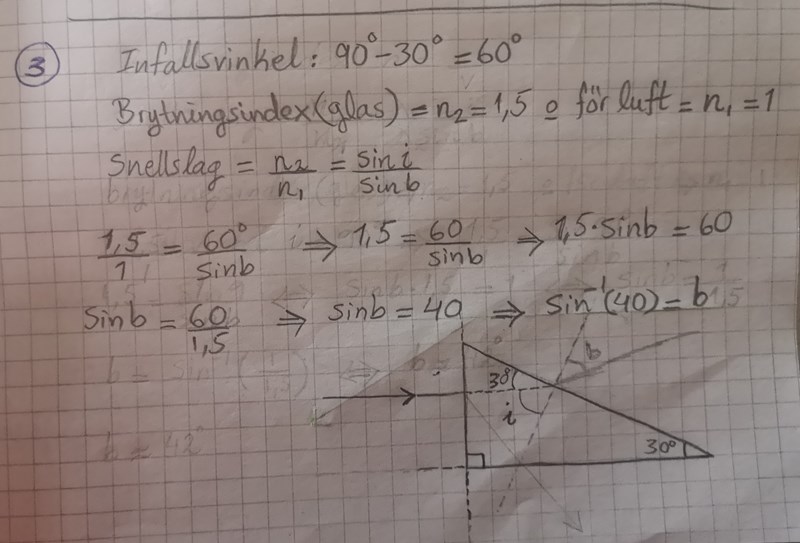 3 Infallsvinkel: 90° - 30° = 60°
Brytningsindex(glas) = n₂ = 1,5 o för luft = n₁ = 1
Snellslag = n₂/n₁ = sin i/sin b
1,5/1 = 60°/sin b ⇒ 1,5 = 60/sin b ⇒ 1,5 · sin b = 60
Sin b = 60/1,5 ⇒ sin b = 40 ⇒ sin⁻¹(40) = b
b
30°
i
30°
b = 42°